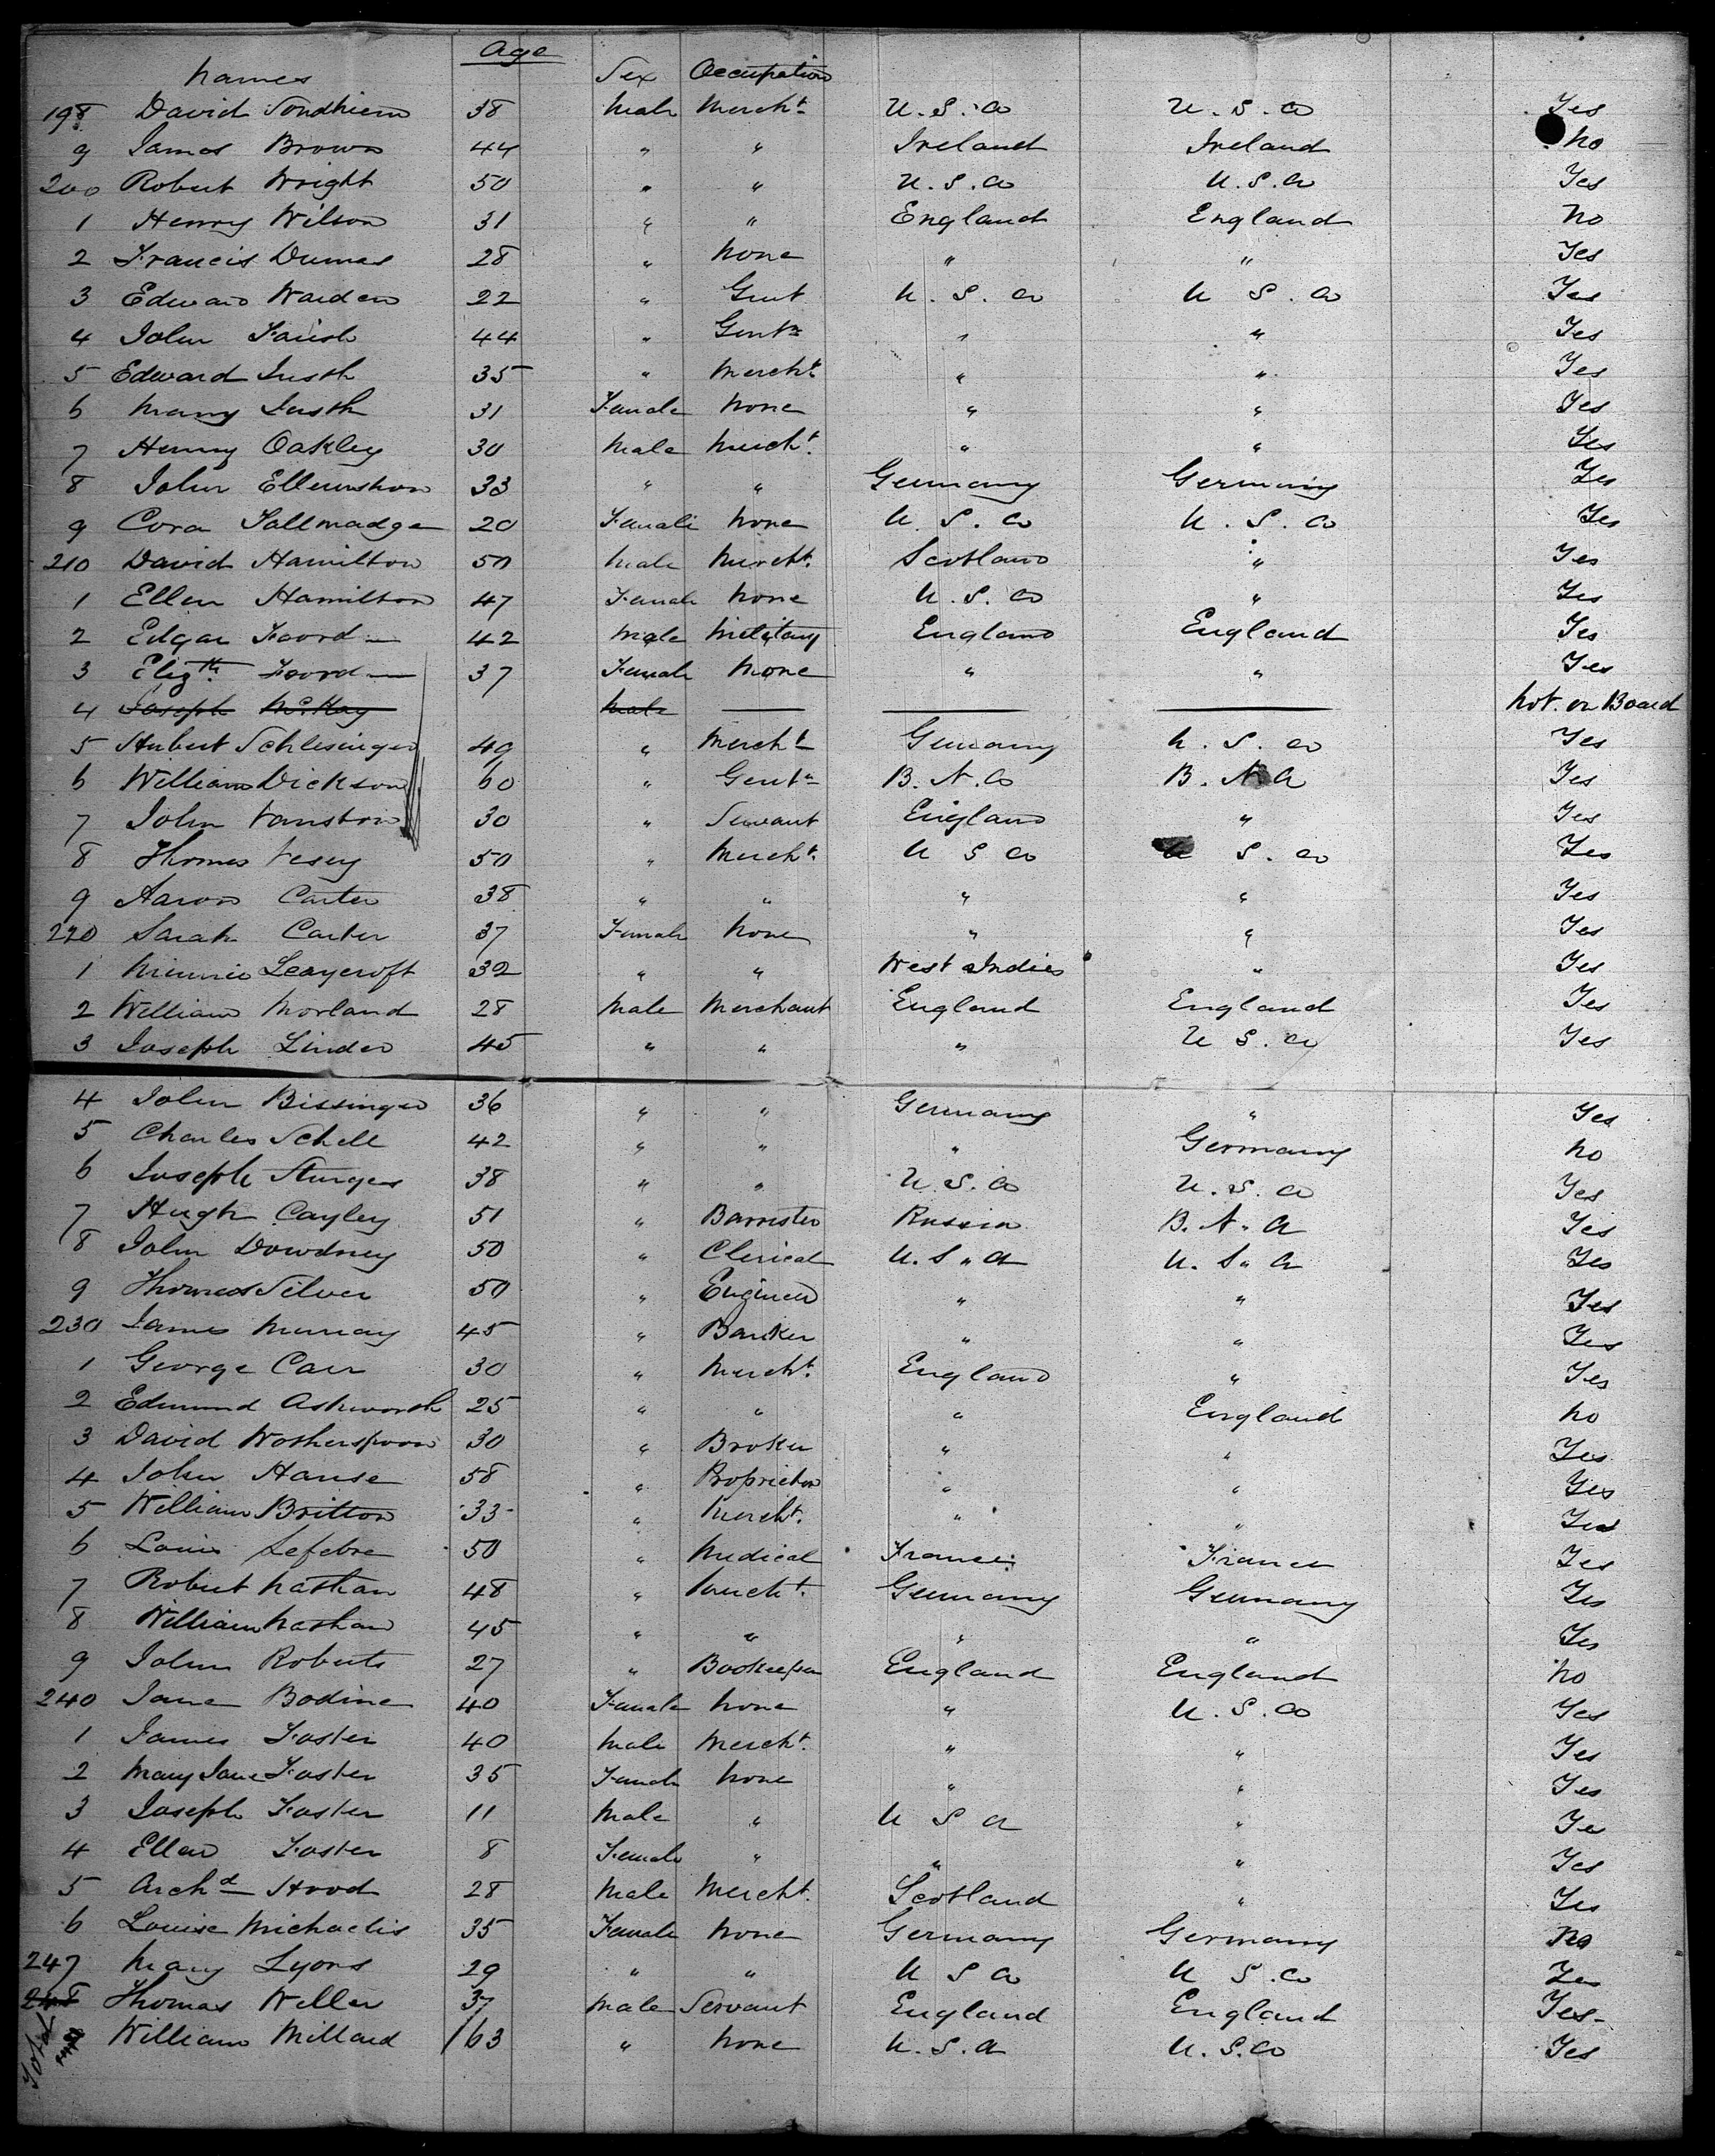 Names Age Sex Occupation
198 David Sondhiem 38 Male Mercht. U.S.A U.S.A Yes
9 James Brown 44 " " Ireland Ireland No
200 Robert Wright 50 " " U.S.A U.S.A Yes
1 Henry Wilson 31 " " England England No
2 Francis Dumas 28 " None " " Yes
3 Edward Warden 22 " Gent U.S.A U S.A Yes
4 John 44 " Gentn " " Yes
5 Edward Lusth 35 " Mercht. " " Yes
6 Mary Lusth 31 Female None " " Yes
7 Henry Oakley 30 Male Mercht. " " Yes
8 John 33 " " Germany Germany Yes
9 Cora Tallmadge 20 Female None U.S.A U.S.A Yes
210 David Hamilton 50 Male Mercht. Scotland " Yes
1 Ellen Hamilton 47 Female None U.S.A " Yes
2 Edgar Foord 42 Male Military England England Yes
3 Elizth. Foord 37 Female None " " Yes
4 Joseph McKay Male — — — Not on Board
5 Hubert Schlesinger 49 " Mercht Germany U.S.A Yes
6 William Dickson 60 " Gentn B.N.A B.N.A Yes
7 John Vanston 30 " Servant England " Yes
8 Thomas Vesey 50 " Mercht. U S A U S.A Yes
9 Aaron Carter 38 " " " " Yes
220 Sarah Carter 37 Female None " " Yes
1 Minnie Leaycroft 32 " " West Indies " Yes
2 William Morland 28 Male Merchant England England Yes
3 Joseph Linder 45 " " " U S.A Yes
4 John Bissinger 36 " " Germany " Yes
5 Charles Schell 42 " " " Germany No
6 Joseph Sturges 38 " " U.S.A U.S.A Yes
7 Hugh Cayley 51 " Barrister Russia B.N.A Yes
8 John Dowdney 50 " Clerical U.S.A U.S.A Yes
9 Thomas Silver 50 " Engineer " " Yes
230 James Murray 45 " Banker " " Yes
1 George Carr 30 " Mercht. England " Yes
2 Edmund Ashworth 25 " " " England No
3 David Wotherspoon 30 " Broker " " Yes
4 John Hanse 58 " Proprietor " " Yes
5 William Britton 33 " Mercht. " " Yes
6 Louis Lefebre 50 " Medical France France Yes
7 Robert Nathan 48 " Mercht. Germany Germany Yes
8 William Nathan 45 " " " " Yes
9 John Roberts 27 " Bookeeper England England No
240 Jane Bodine 40 Female None " U.S.A Yes
1 James Foster 40 Male Mercht. " " Yes
2 Mary Jane Foster 35 Female None " " Yes
3 Joseph Foster 11 Male " U S A " Yes
4 Ellen Foster 8 Female " " " Yes
5 Archd Hood 28 Male Mercht. Scotland " Yes
6 Louise Michaelis 35 Female None Germany Germany No
247 Mary Lyons 29 " " U S A U S.A Yes
248 Thomas Weller 37 Male Servant England England Yes
Total William Millard 63 " None U.S.A U.S.A Yes